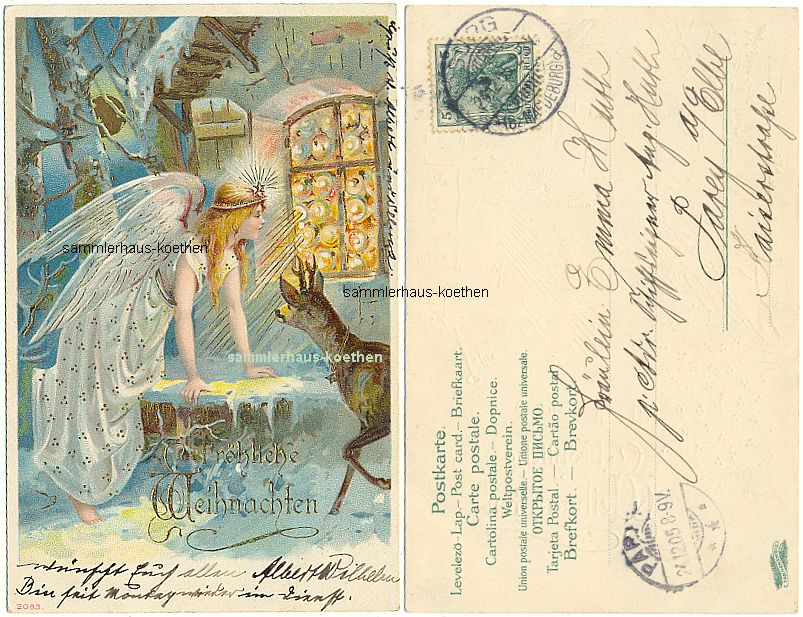 sammlerhaus-koethen
sammlerhaus-koethen
sammlerhaus-koethen
Fröhliche
Weihnachten
wünscht Euch allen Albert Wilhelm
Bin seit Montag wieder im Dienst.
2083.
5
BURG
24.12.05.8-9V.
Fräulein Emma Huth
Aug. Huth
Parey a/ Elbe
Kaiserstraße
Postkarte.
Levelező-Lap.– Post card.– Briefkaart.
Carte postale.
Cartolina postale.– Dopnice.
Weltpostverein.
Union postale universelle.– Unione postale universale.
ОТКРЫТОЕ ПИСЬМО.
Tarjeta Postal. – Cartão postal
Brefkort. – Brevkort.